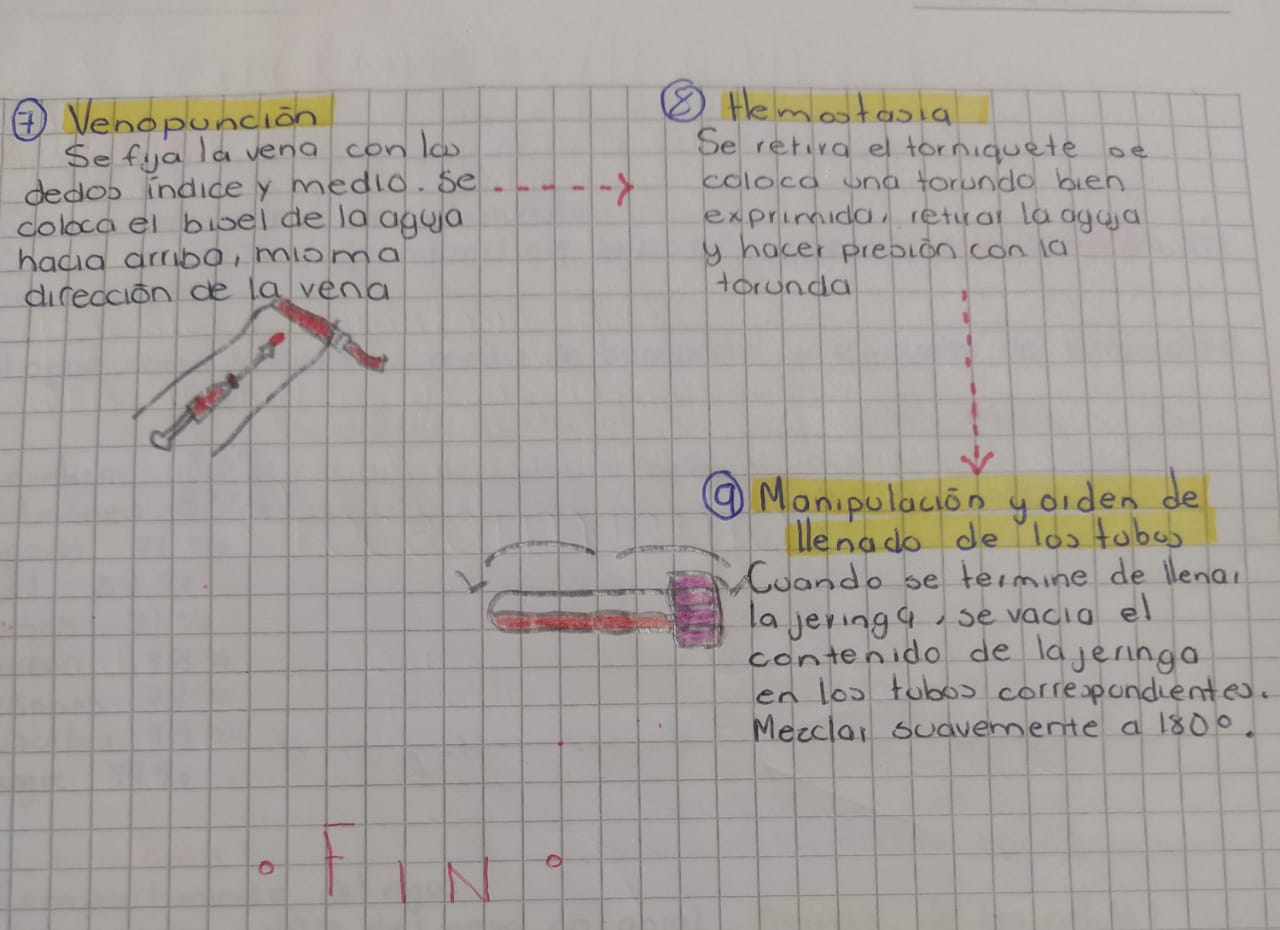 7 Venopunción
Se fija la vena con los
dedos índice y medio. Se
coloca el bisel de la aguja
hacia arriba, misma
dirección de la vena
8 Hemostasia
Se retira el torniquete se
coloca una torundo bien
exprimida, retirar la aguja
y hacer presión con la
torunda
9 Manipulación y orden de
llenado de los tubos
Cuando se termine de llenar
la jeringa, se vacia el
contenido de la jeringa
en los tubos correspondientes.
Mezclar suavemente a 180°.
• FIN •